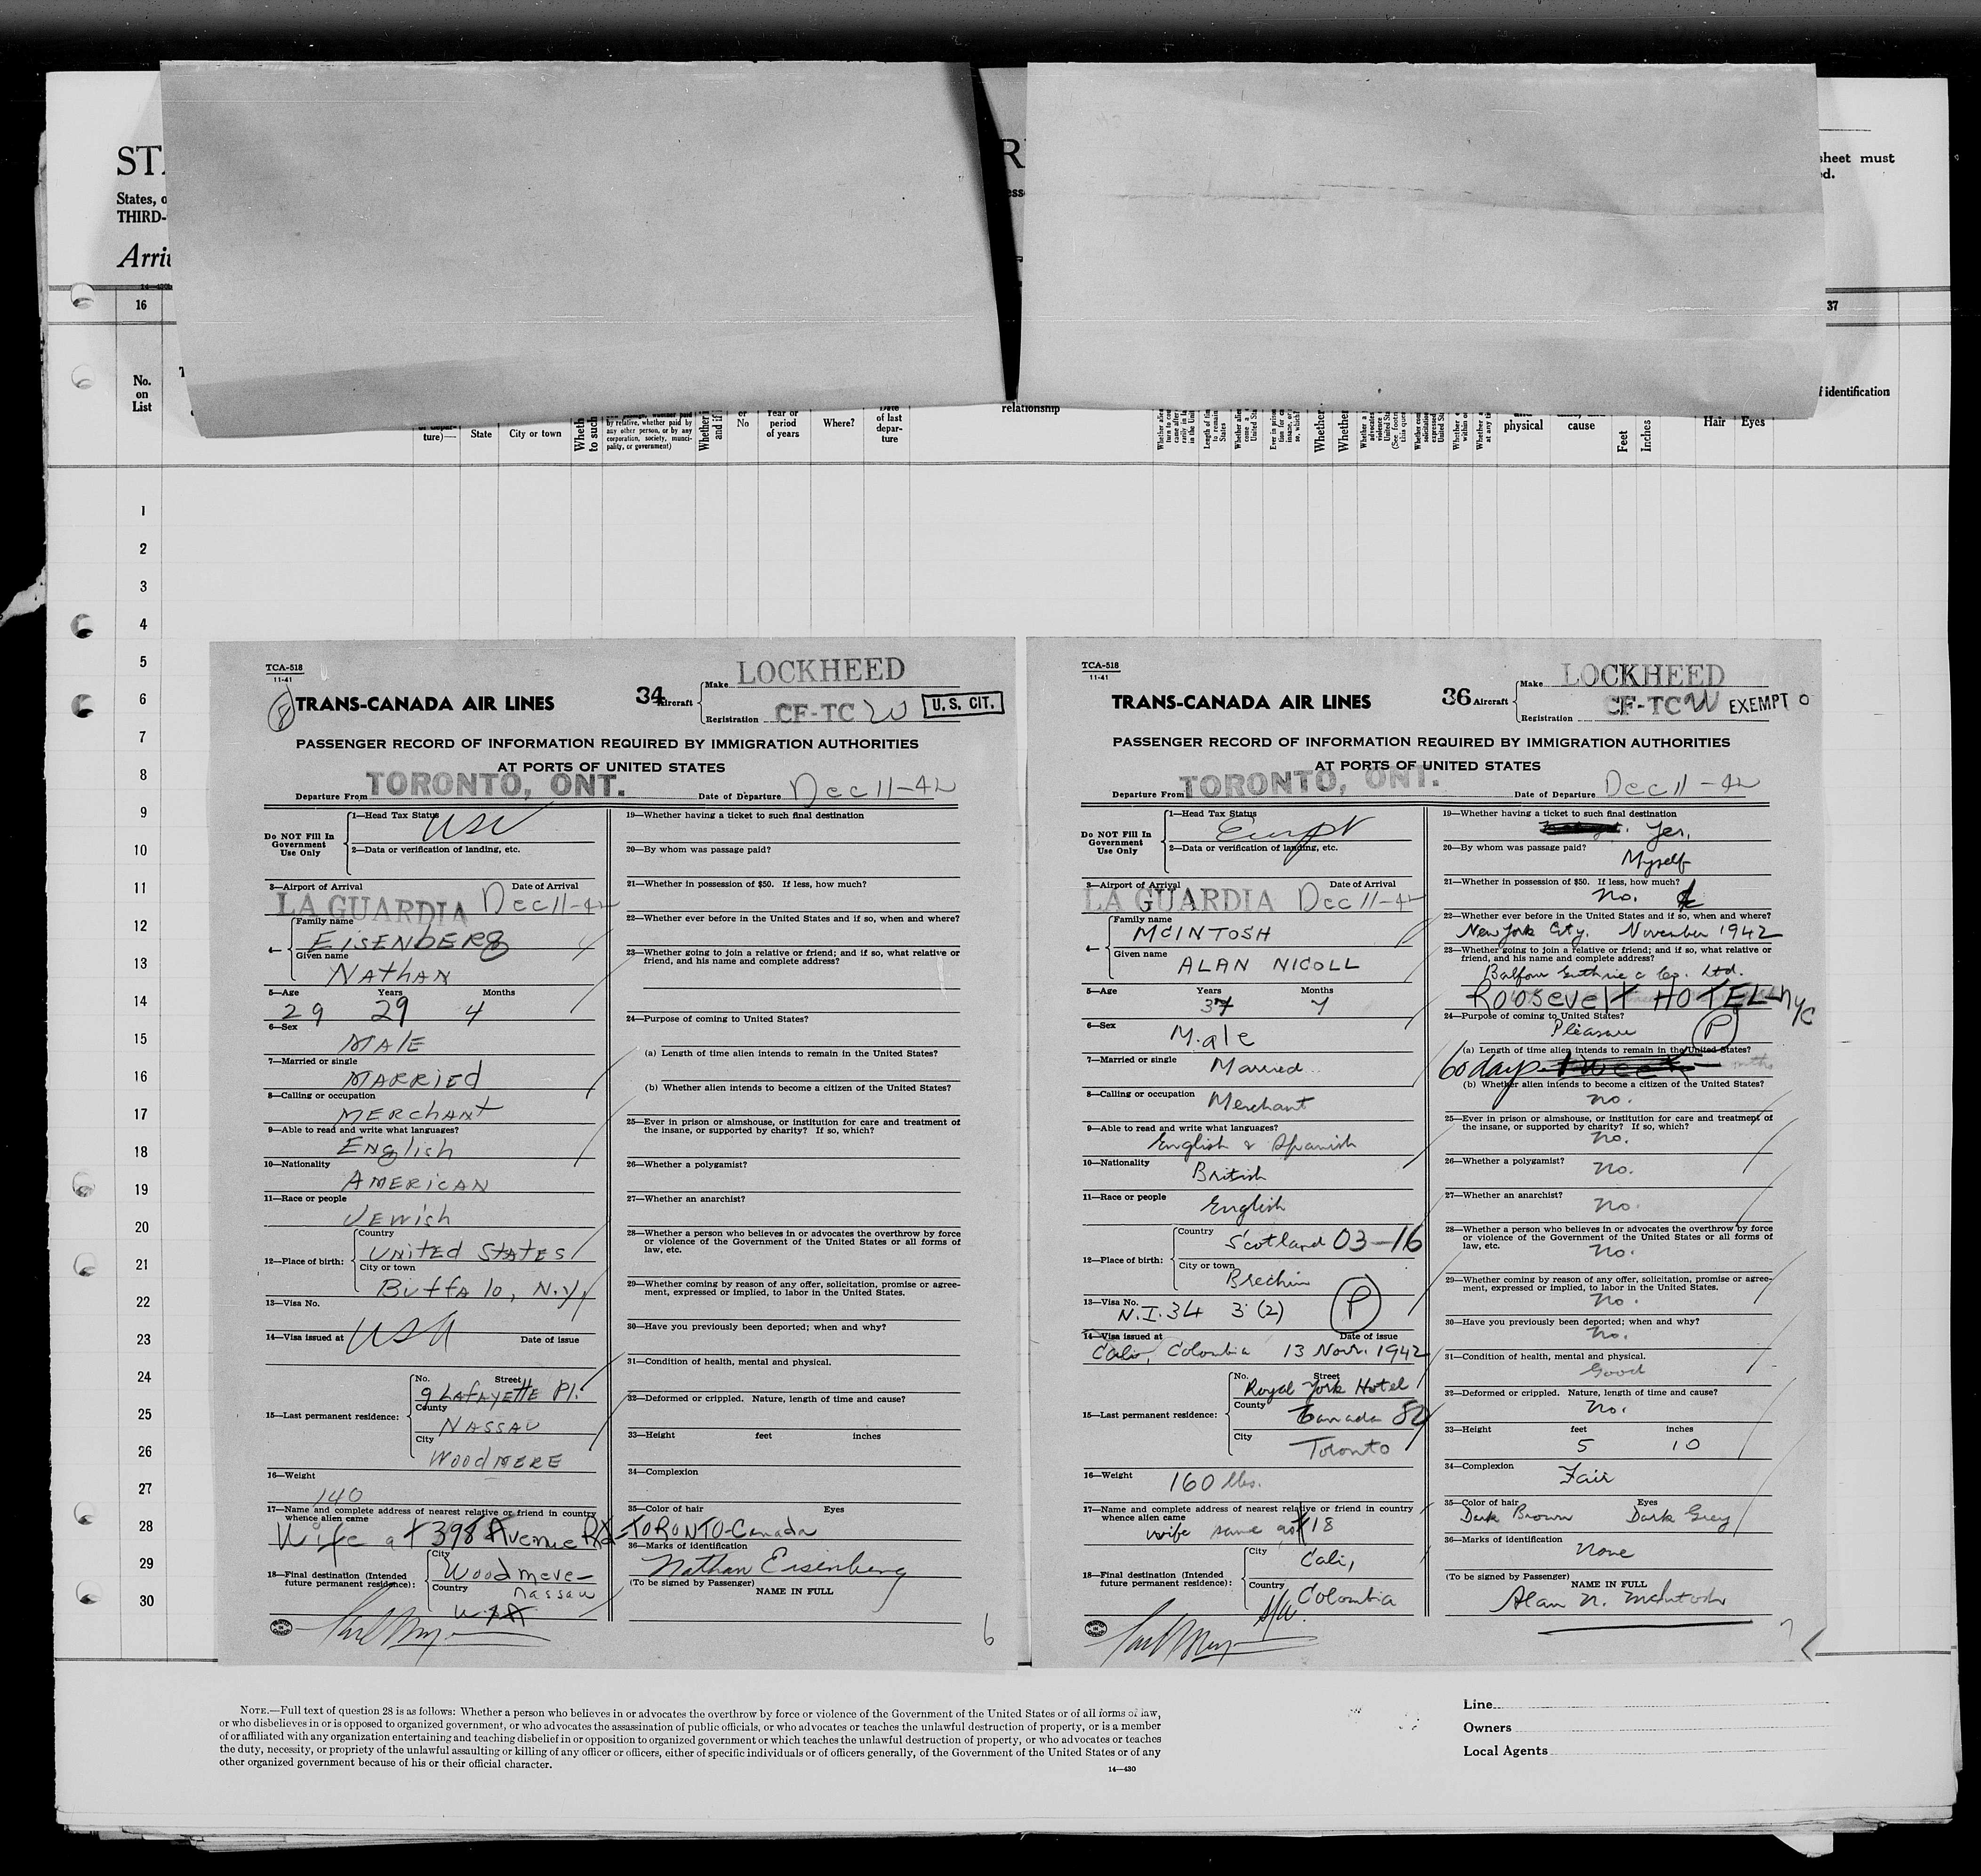 ST
States, o
THIRD-
Arri
R
ess
sheet must
ed.
16
37
No.
on
List
ture)—
State
City or town
Wheth
to such
by relative, whether paid
by any other person, or by any
corporation, society, munici-
pality, or government)
Whether
and if
or
No
Year or
period
of years
Where?
Date
of last
depar-
ture
relationship
Whether
Whether
physical
cause
Feet
Inches
Hair
Eyes
f identification
1
2
3
4
5
6
7
8
9
10
11
12
13
14
15
16
17
18
19
20
21
22
23
24
25
26
27
28
29
30
TCA-518
11-41
8
TRANS-CANADA AIR LINES
34
Aircraft
Make LOCKHEED
Registration CF-TC W
U. S. CIT.
PASSENGER RECORD OF INFORMATION REQUIRED BY IMMIGRATION AUTHORITIES
AT PORTS OF UNITED STATES
Departure From TORONTO, ONT. Date of Departure Dec 11-42
Do NOT Fill In
Government
Use Only
1—Head Tax Status
USC
2—Data or verification of landing, etc.
3—Airport of Arrival Date of Arrival
LA GUARDIA Dec 11-42
4— Family name
EISENBERG
Given name
NATHAN
5—Age Years Months
29 29 4
6—Sex
MALE
7—Married or single
MARRIED
8—Calling or occupation
MERCHANT
9—Able to read and write what languages?
English
10—Nationality
AMERICAN
11—Race or people
JEWISH
12—Place of birth: Country
UNITED STATES
City or town
Buffalo, N.Y.
13—Visa No.
14—Visa issued at USA Date of issue
15—Last permanent residence: No. Street
9 LAFAYETTE Pl.
County
NASSAU
City
WOODMERE
16—Weight
140
17—Name and complete address of nearest relative or friend in country
whence alien came
Wife at 398 Avenue Rd-TORONTO-Canada
18—Final destination (Intended
future permanent residence): City
Woodmere-
Country Nassau
USA
19—Whether having a ticket to such final destination
20—By whom was passage paid?
21—Whether in possession of $50. If less, how much?
22—Whether ever before in the United States and if so, when and where?
23—Whether going to join a relative or friend; and if so, what relative or
friend, and his name and complete address?
24—Purpose of coming to United States?
(a) Length of time alien intends to remain in the United States?
(b) Whether alien intends to become a citizen of the United States?
25—Ever in prison or almshouse, or institution for care and treatment of
the insane, or supported by charity? If so, which?
26—Whether a polygamist?
27—Whether an anarchist?
28—Whether a person who believes in or advocates the overthrow by force
or violence of the Government of the United States or all forms of
law, etc.
29—Whether coming by reason of any offer, solicitation, promise or agree-
ment, expressed or implied, to labor in the United States.
30—Have you previously been deported; when and why?
31—Condition of health, mental and physical.
32—Deformed or crippled. Nature, length of time and cause?
33—Height feet inches
34—Complexion
35—Color of hair Eyes
36—Marks of identification
Nathan Eisenberg
(To be signed by Passenger) NAME IN FULL
6
TCA-518
11-41
TRANS-CANADA AIR LINES
36
Aircraft
Make LOCKHEED
Registration CF-TC W
EXEMPT
PASSENGER RECORD OF INFORMATION REQUIRED BY IMMIGRATION AUTHORITIES
AT PORTS OF UNITED STATES
Departure From TORONTO, ONT. Date of Departure Dec 11-42
Do NOT Fill In
Government
Use Only
1—Head Tax Status
Exempt
2—Data or verification of landing, etc.
3—Airport of Arrival Date of Arrival
LA GUARDIA Dec 11-42
4— Family name
MCINTOSH
Given name
ALAN NICOLL
5—Age Years Months
37 7
6—Sex
Male
7—Married or single
Married
8—Calling or occupation
Merchant
9—Able to read and write what languages?
English & Spanish
10—Nationality
British
11—Race or people
English
12—Place of birth: Country
Scotland 03-16
City or town
Brechin
13—Visa No.
N.I. 34 3 (2) P
14—Visa issued at Date of issue
Cali, Colombia 13 Novr. 1942
15—Last permanent residence: No. Street
Royal York Hotel
County
Canada 82
City
Toronto
16—Weight
160 lbs.
17—Name and complete address of nearest relative or friend in country
whence alien came
wife same as #18
18—Final destination (Intended
future permanent residence): City
Cali,
Country
Colombia
S/A.
19—Whether having a ticket to such final destination
Yes.
20—By whom was passage paid?
Myself
21—Whether in possession of $50. If less, how much?
No.
22—Whether ever before in the United States and if so, when and where?
New York City. November 1942
23—Whether going to join a relative or friend; and if so, what relative or
friend, and his name and complete address?
Balfour Guthrie & Co. Ltd.
Roosevelt HOTEL-NYC
24—Purpose of coming to United States?
Pleasure P
(a) Length of time alien intends to remain in the United States?
60 days 1 week
(b) Whether alien intends to become a citizen of the United States?
no.
25—Ever in prison or almshouse, or institution for care and treatment of
the insane, or supported by charity? If so, which?
no.
26—Whether a polygamist?
no.
27—Whether an anarchist?
no.
28—Whether a person who believes in or advocates the overthrow by force
or violence of the Government of the United States or all forms of
law, etc.
no.
29—Whether coming by reason of any offer, solicitation, promise or agree-
ment, expressed or implied, to labor in the United States.
no.
30—Have you previously been deported; when and why?
no.
31—Condition of health, mental and physical.
Good
32—Deformed or crippled. Nature, length of time and cause?
no.
33—Height feet inches
5 10
34—Complexion
Fair
35—Color of hair Eyes
Dark Brown Dark Grey
36—Marks of identification
None
(To be signed by Passenger) NAME IN FULL
Alan N. McIntosh
7
NOTE.—Full text of question 28 is as follows: Whether a person who believes in or advocates the overthrow by force or violence of the Government of the United States or of all forms of law,
or who disbelieves in or is opposed to organized government, or who advocates the assassination of public officials, or who advocates or teaches the unlawful destruction of property, or is a member
of or affiliated with any organization entertaining and teaching disbelief in or opposition to organized government or which teaches the unlawful destruction of property, or who advocates or teaches
the duty, necessity, or propriety of the unlawful assaulting or killing of any officer or officers, either of specific individuals or of officers generally, of the Government of the United States or of any
other organized government because of his or their official character.
14—430
Line
Owners
Local Agents